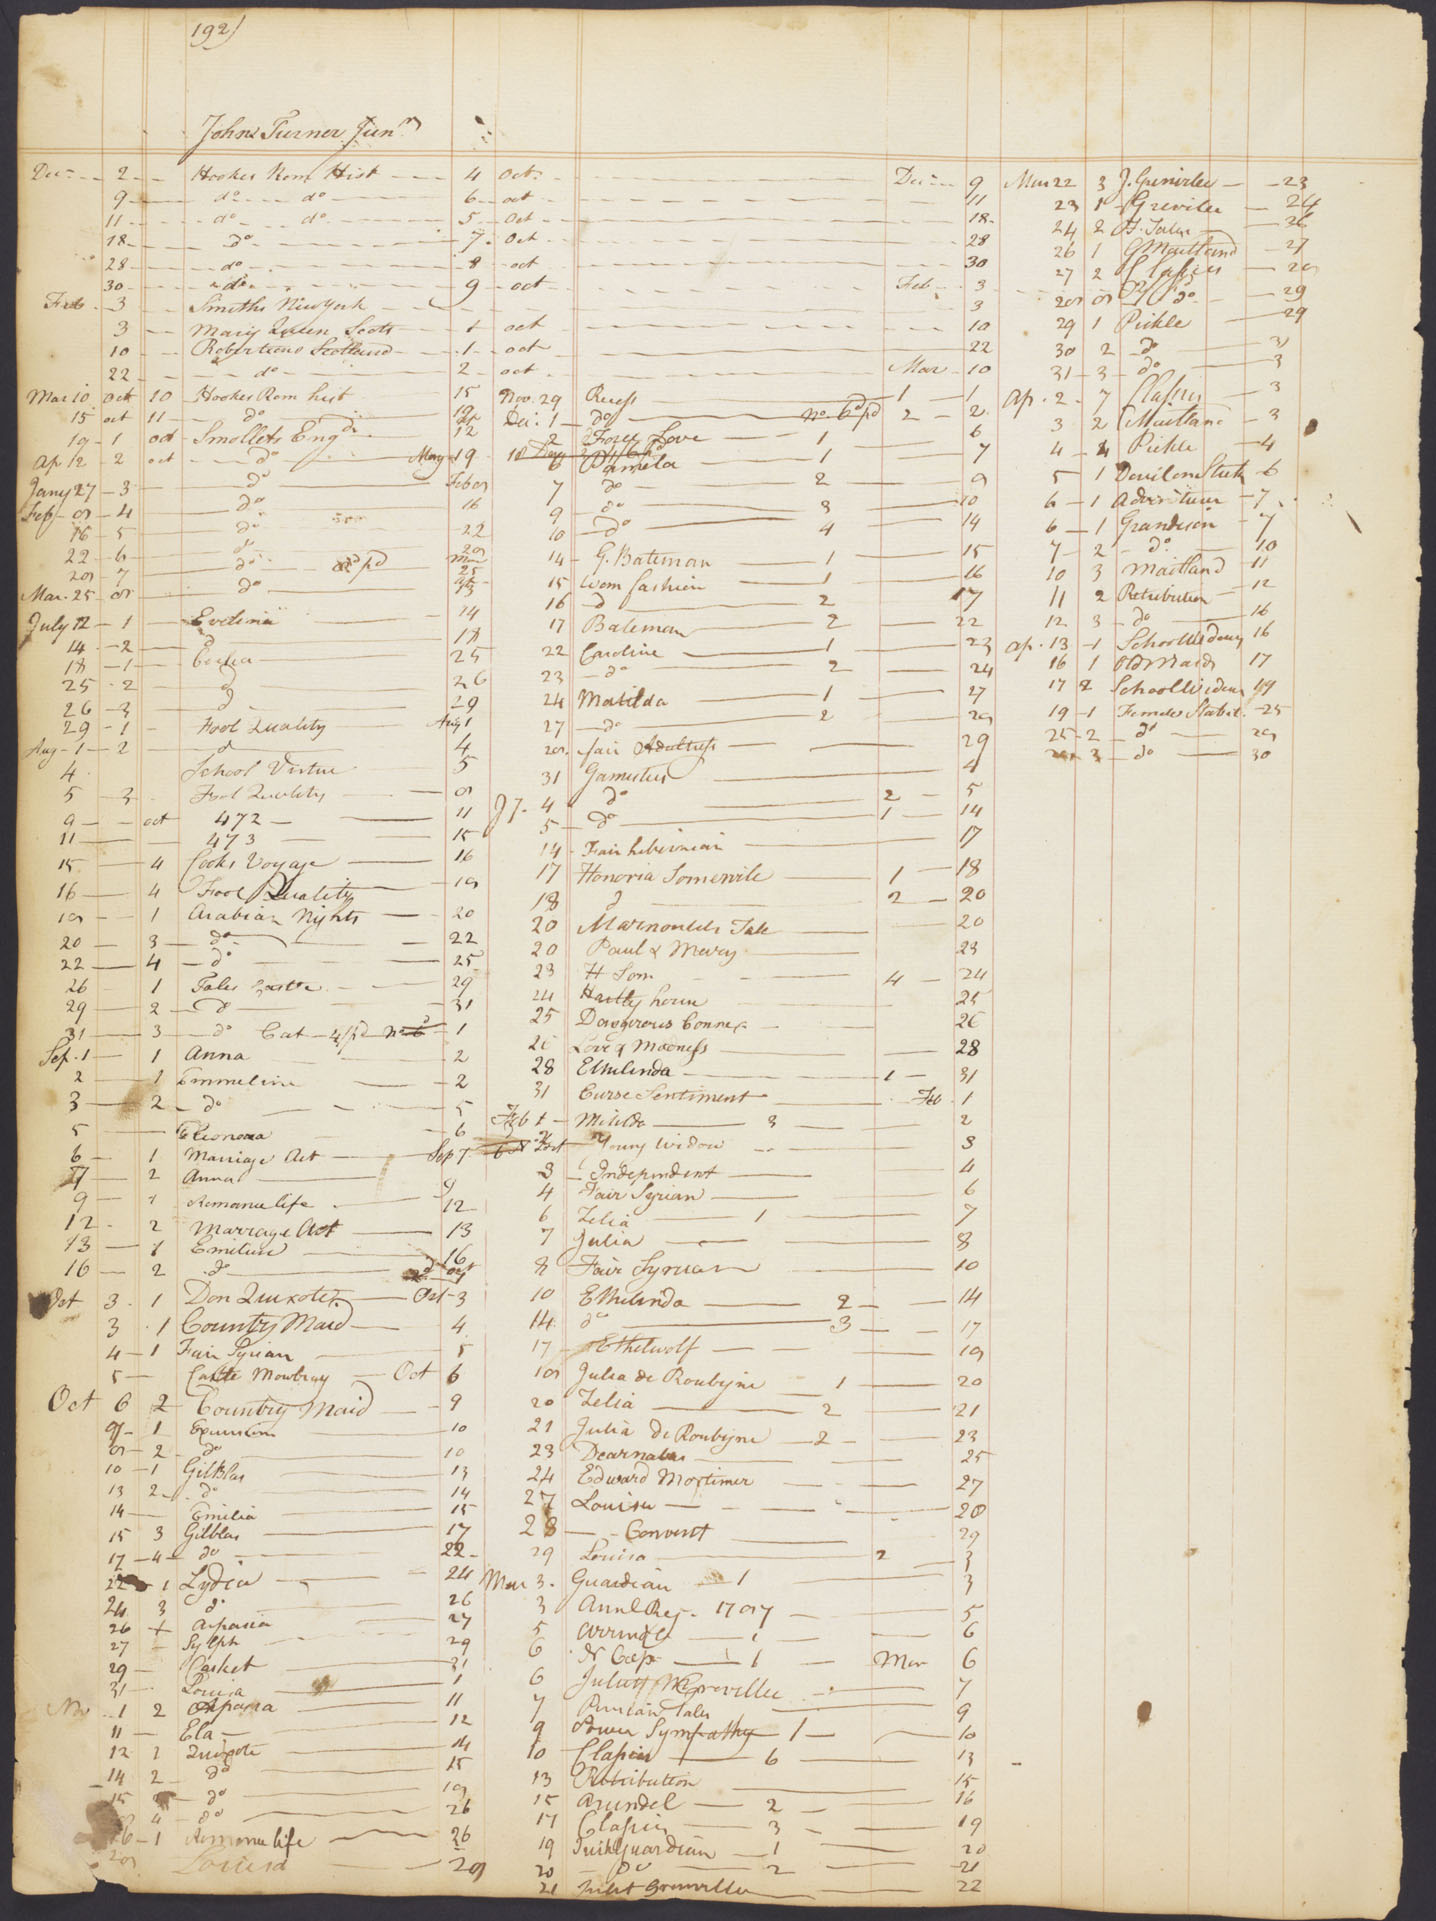 192)
John Turner Junr
Dec 2 Hookes Rom Hist 4 Oct
9 do do 6 oct
11 do do 5 Oct
18 do 7 Oct
28 do 8 oct
30 do 9 oct
Feb 3 Smiths New York
3 Mary Queen Scots 1 oct
10 Robertsons Scotland 1 oct
22 do 2 oct
Mar 10 Oct 10 Hookes Rom hist 15
15 oct 11 do 19
19 1 oct Smollets Engd 12
Ap 12 2 oct do May 19
Jany 27 3 do Feb 8
Feb 8 4 do 16
16 5 do 22
22 6 do 28
28 7 do pd Mar 25
Mar. 25 8 do
July 12 1 Evelina 14
14 2 do 18
18 1 Cecilia 25
25 2 do 26
26 3 do 29
29 1 Fool Quality Aug 1
Aug 1 2 do 4
4 School Virtue 5
5 3 Fool Quality 8
9 oct 472 11
11 473 15
15 4 Cooks Voyage 16
16 4 Fool Quality 18
18 1 Arabian Nights 20
20 3 do 22
22 4 do 25
26 1 Tales Castle 29
29 2 do 31
31 3 do Cat 1
Sep. 1 1 Anna 2
2 1 Emmeline 2
3 2 do 5
5 Eleonora 6
6 1 Marriage Act Sep 7
7 2 Anna 9
9 1 Romance life 12
12 2 Marrage Act 13
13 1 Emeline 16
16 2 do
Oct 3 1 Don Quixote Oct 3
3 1 Country Maid 4
4 1 Fair Syrian 5
5 Castle Mowbray Oct 6
Oct 6 2 Country Maid 9
8 1 Excursion 10
8 2 do 10
10 1 Gil Blas 13
13 2 do 14
14 Emilia 15
15 3 Gilblas 17
17 4 do 22
22 1 Lydia 24
24 3 do 26
26 Aspasia 27
27 Sylph 29
29 Casket 31
31 Louisa 1
Nov 1 2 Aspasia 11
11 Ela 12
12 1 Quixote 14
14 2 do 15
15 do 18
18 4 do 26
26 1 Romance life 26
28 Louisa 28
Dec 9
11
18
28
30
Feb 3
3
10
22
Mar 10
Nov. 29 Recess 1 1
Dec. 1 do No. 6d pd 2 2
2 Love 1 6
6 Pamela 1 7
7 do 2 9
9 do 3 10
10 do 4 14
14 G. Bateman 1 15
15 Wom fashion 1 16
16 d 2 17
17 Bateman 2 22
22 Caroline 1 23
23 do 2 24
24 Matilda 1 27
27 do 2 28
28 fair Adultress 29
31 Gamesters 4
Jy. 4 do 2 5
5 do 1 14
14 Fair hibernian 17
17 Honoria Somervile 1 18
18 d 2 20
20 Marmontels Tale 20
20 Paul & Mary 23
23 H Som 4 24
24 Hartly house 25
25 Dangerous Connex 26
26 Love & Madness 28
28 Ethelinda 1 31
31 Curse Sentiment Feb 1
Feb 1 Matilda 3 2
2 Young Widow 3
3 Independent 4
4 Fair Syrian 6
6 Zelia 1 7
7 Julia 8
8 Fair Syrian 10
10 Ethelinda 2 14
14 do 3 17
17 Ethelwolf 18
18 Julia de Roubigne 1 20
20 Zelia 2 21
21 Julia de Roubigne 2 23
23 Dearnabas 25
24 Edward Mortimer 27
27 Louisa 28
28 Convent 29
29 Louisa 2 3
Mar 3. Guardian 1 3
3 Annl Reg. 1787 5
5 Arundel 1 6
6 1 Mar 6
6 Juliet Greville 7
7 Persian Tales 9
9 Power Sympathy 1 10
10 Classics 6 13
13 Retribution 15
15 Arundel 2 16
17 Classics 3 19
19 Guardian 1 20
20 do 2 21
21 Juliet Grenville 22
Mar 22 3 J. Grenvilee 23
23 1 Grevilee 24
24 2 26
26 1 G Maitland 27
27 2 Classics 28
28 8 do 29
29 1 Pickle 29
30 2 do 31
31 3 do 3
Ap. 2 7 Classics 3
3 2 Maitland 3
4 4 Pickle 4
5 1 Devil on Stick 6
6 1 Adventurer 7
6 1 Grandison 7
7 2 do 10
10 3 Maitland 11
11 2 Retribution 12
12 3 do 16
Ap. 13 1 School Widows 16
16 1 Old Maids 17
17 2 School Widows 19
19 1 Females Stabil. 25
25 2 do 28
28 3 do 30